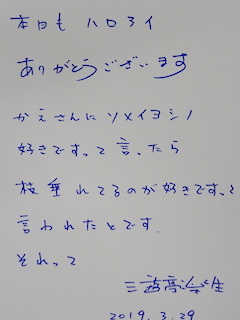 本日も ハロライ
ありがとうございます
かえさんにソメイヨシノ
好きですって言ったら
枝垂れてるのが好きですって
言われたとです.
それって
三遊亭楽生
2019.3.29